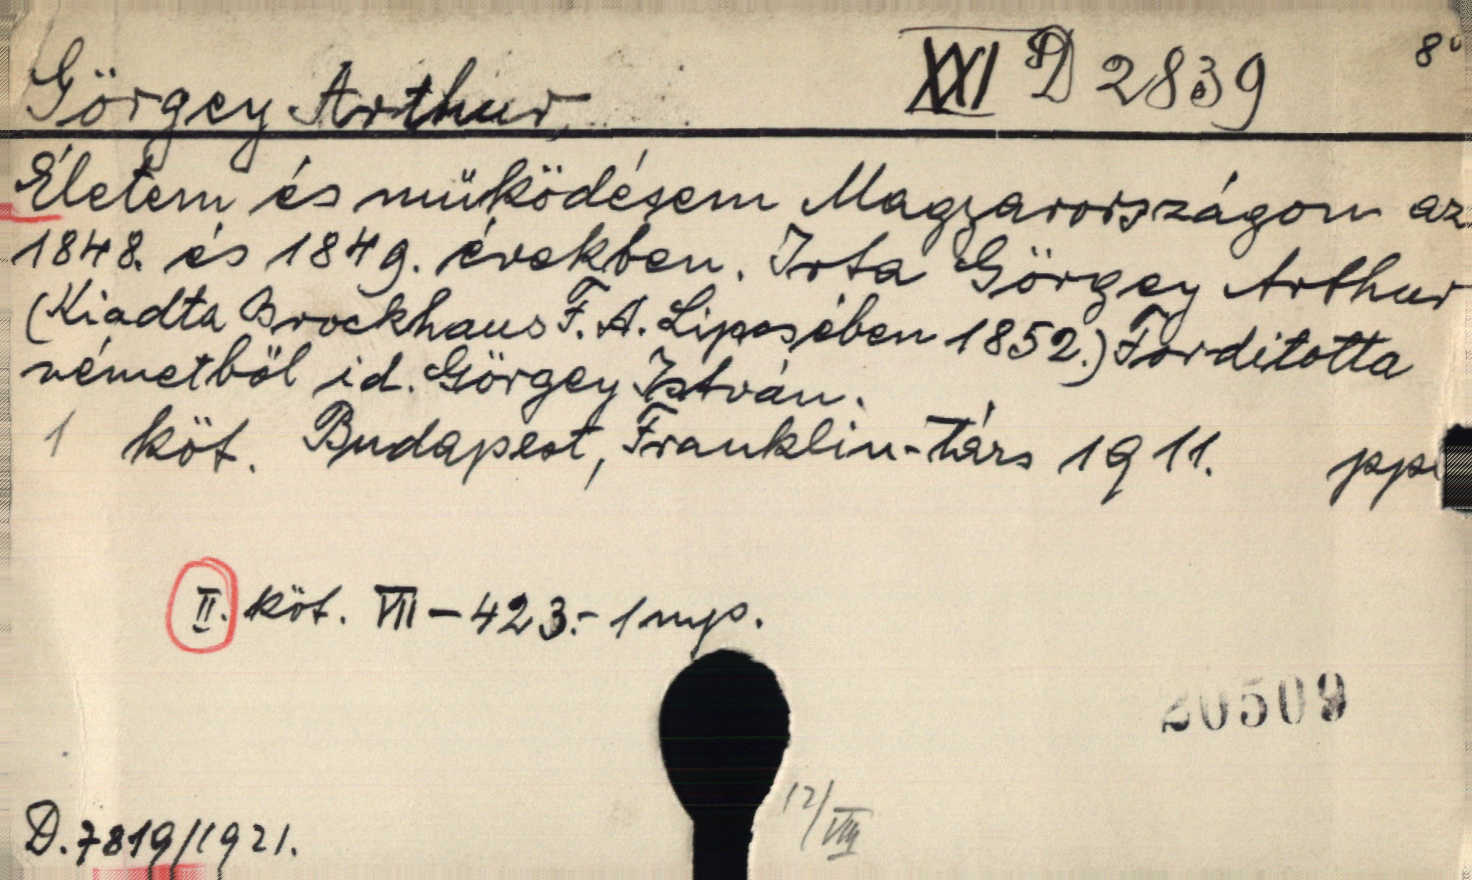 Görgey Arthur, XXI D 2839 8°
Életem és müködésem Magyarországon az
1848. és 1849. években. Irta Görgey Arthur
(Kiadta Brockhaus F. A. Lipcsében 1852.) Forditotta
németböl id. Görgey István.
1 köt. Budapest, Franklin-Társ 1911. pp.
II. köt. VII – 423.- 1 mp.
20509
12/VIII
D. 7819/1921.